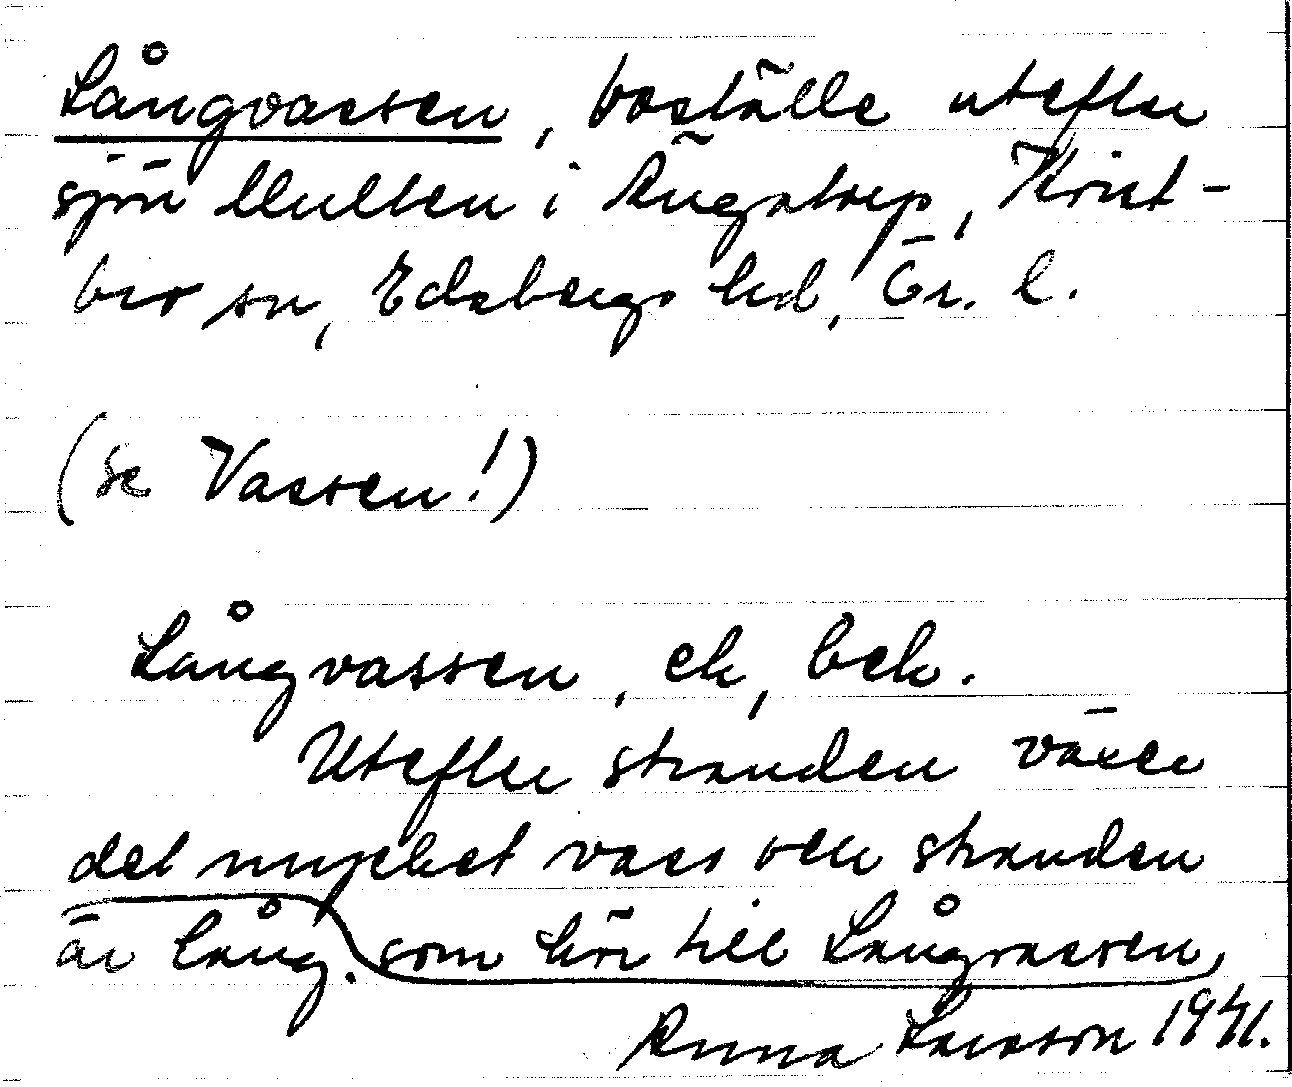 Långvassen, boställe utefter
sjön Multen i Ängstorp, Krist-
bro sn, Edsbergs hd, Ör. l.
(se Vassen!)
Långvassen, ek, bek.
Utefter stranden växer
det mycket vass och stranden
är lång. som hör till Långvassen,
Anna Larsson 1941.